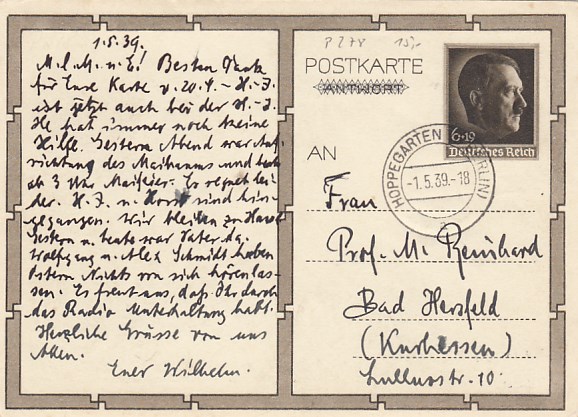 1.5.39.
M. l. M. u. E! Besten Dank
für Eure Karte v. 20.4. – H.-J.
ist jetzt auch bei der H.-J.
He hat immer noch keine
Hilfe. Gestern Abend war Auf-
richtung des Maibaums und heute
ab 3 Uhr Maifeier. Es regnet leider.
der H. J. u. Horst sind hin-
gegangen. Wir bleiben zu Hause
Gestern u. heute war Vater da.
Wolfgang u. Alex Schmidt haben
Ostern Nichts von sich hören las-
sen. Es freut uns, daß Ihr durch
das Radio Unterhaltung habt.
Herzliche Grüsse von uns
Allen.
Euer Wilhelm.
P 278 15,-
POSTKARTE
ANTWORT
6+19
Deutsches Reich
HOPPEGARTEN (BERLIN)
-1.5.39.-18
AN
Frau
Prof. M. Reinhard
Bad Hersfeld
(Kurhessen)
Lullusstr. 10.